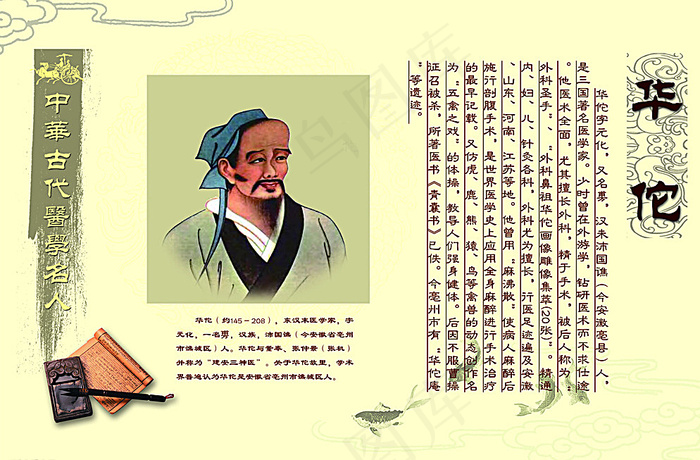 华佗
华佗字元化，又名旉，汉末沛国谯（今安徽亳县）人，
是三国著名医学家。少时曾在外游学，钻研医术而不求仕途
。他医术全面，尤其擅长外科，精于手术，被后人称为："
外科圣手"、"外科鼻祖华佗画像雕像集萃(20张)"。精通
内、妇、儿、针灸各科，外科尤为擅长，行医足迹遍及安徽
、山东、河南、江苏等地。他曾用"麻沸散"使病人麻醉后
施行剖腹手术，是世界医学史上应用全身麻醉进行手术治疗
的最早记载。又仿虎、鹿、熊、猿、鸟等禽兽的动态创作名
为"五禽之戏"的体操，教导人们强身健体。后因不服曹操
征召被杀，所著医书《青囊书》已佚。今亳州市有"华佗庵
"等遗迹。
中華古代醫學名人
华佗（约145－208），东汉末医学家，字
元化，一名旉，汉族，沛国谯（今安徽省亳
州市谯城区）人。华佗与董奉、张仲景（张机）
并称为"建安三神医"。关于华佗故里，学术
界普遍认为华佗是安徽省亳州市谯城区人。